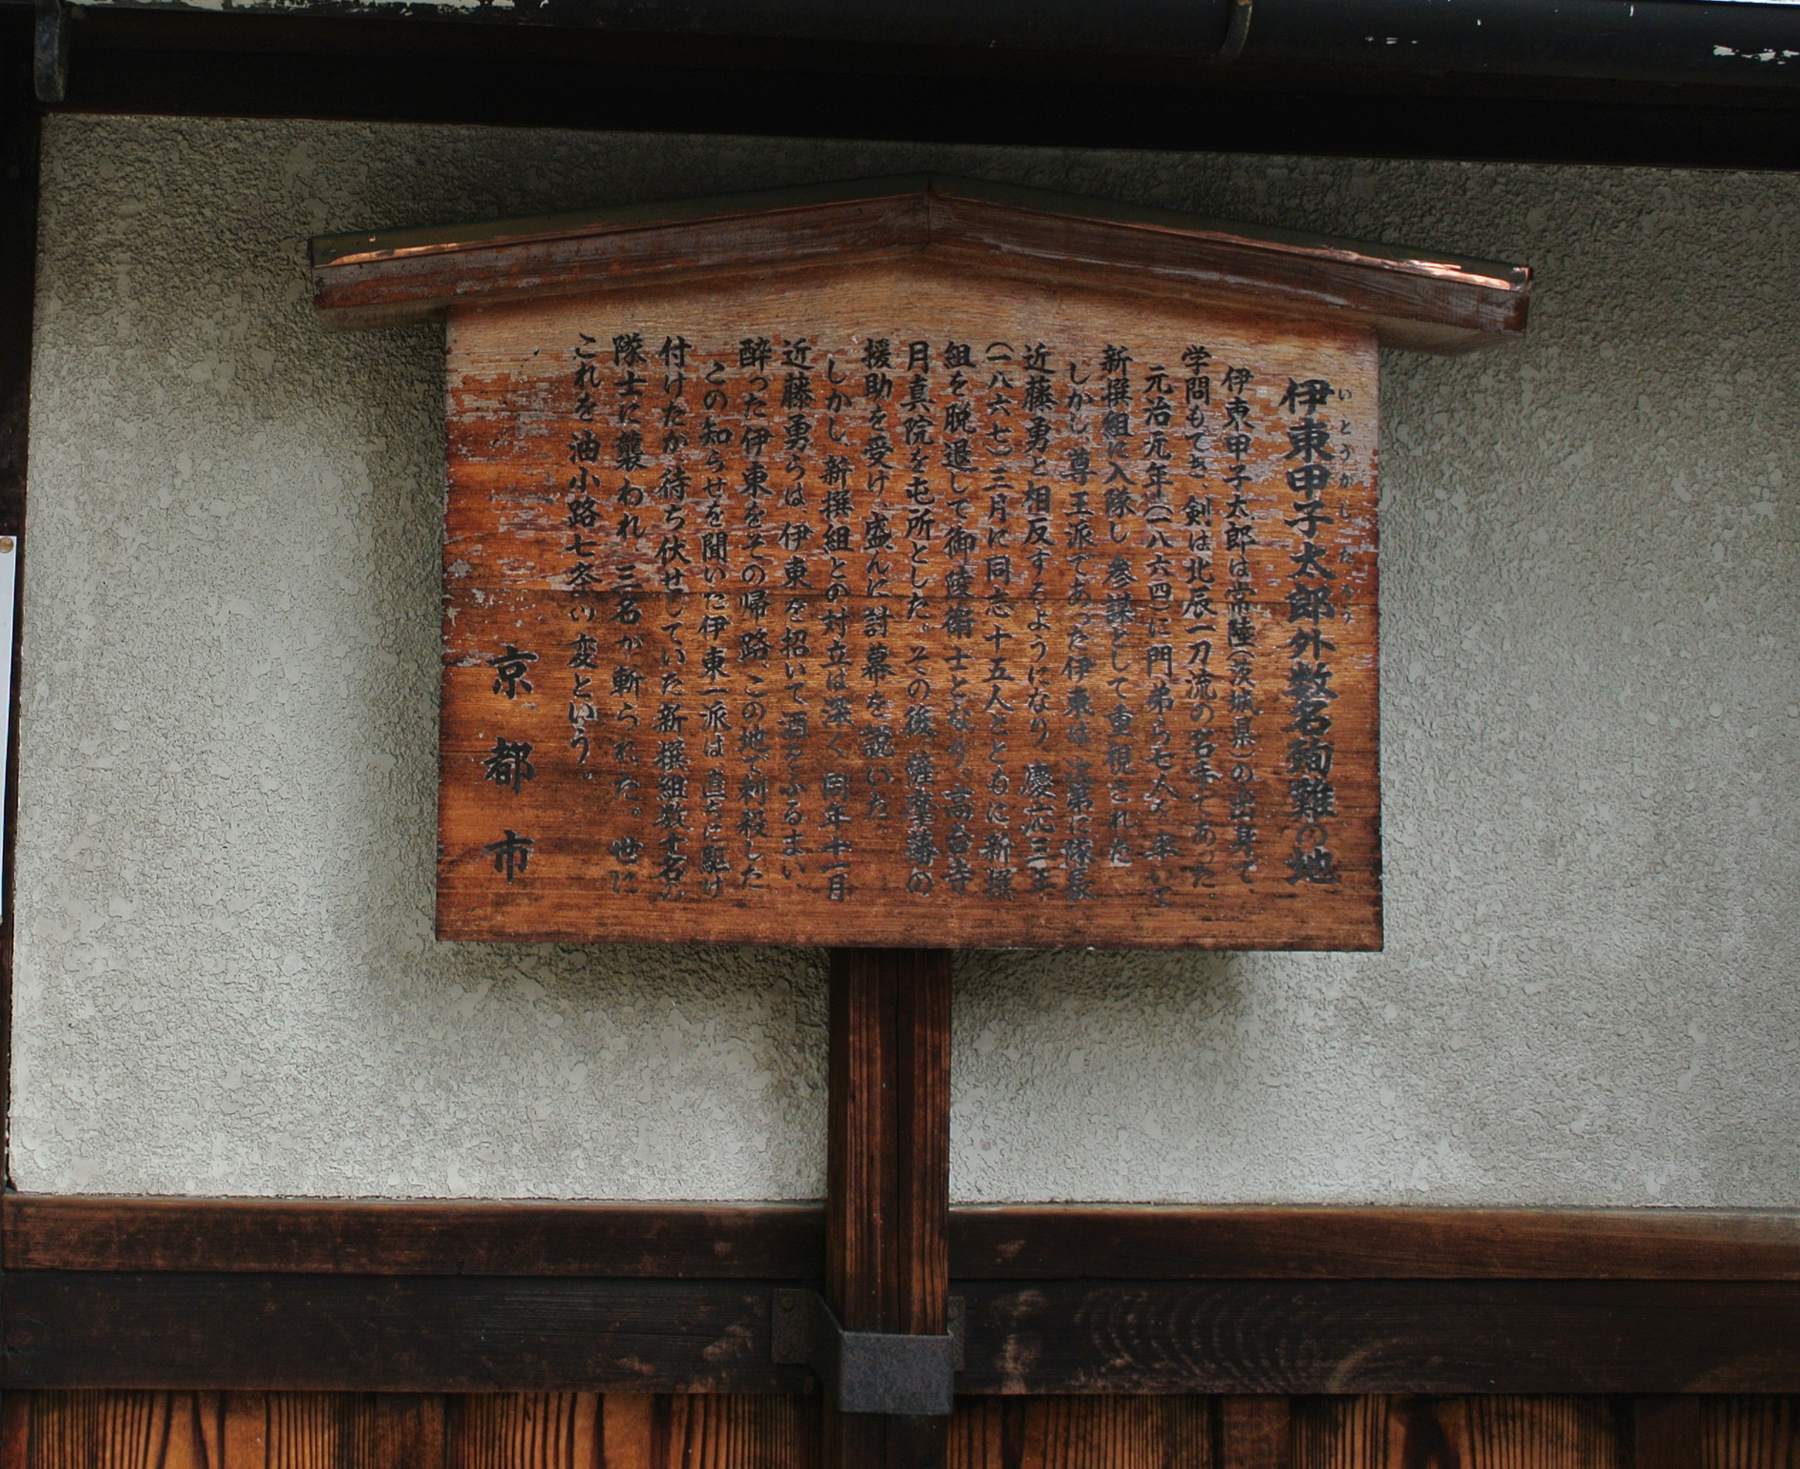 伊東甲子太郎外数名殉難の地
いとうかしたろう
伊東甲子太郎は常陸(茨城県)の出身で、
学問もでき、剣は北辰一刀流の名手であった。
元治元年(一八六四)に門弟ら七人を率いて
新撰組に入隊し、参謀として重視された。
しかし、尊王派であった伊東は、次第に隊長
近藤勇と相反するようになり、慶応三年
(一八六七)三月に同志十五人とともに新撰
組を脱退して御陵衛士となり、高台寺
月真院を屯所とした。その後、薩摩藩の
援助を受け、盛んに討幕を説いた。
しかし、新撰組との対立は深く、同年十一月
近藤勇らは、伊東を招いて酒をふるまい、
酔った伊東をその帰路、この地で刺殺した。
この知らせを聞いた伊東一派は直ちに駆け
付けたが待ち伏せしていた新撰組数十名の
隊士に襲われ、三名が斬られた。世に
これを油小路七条の変という。
京都市